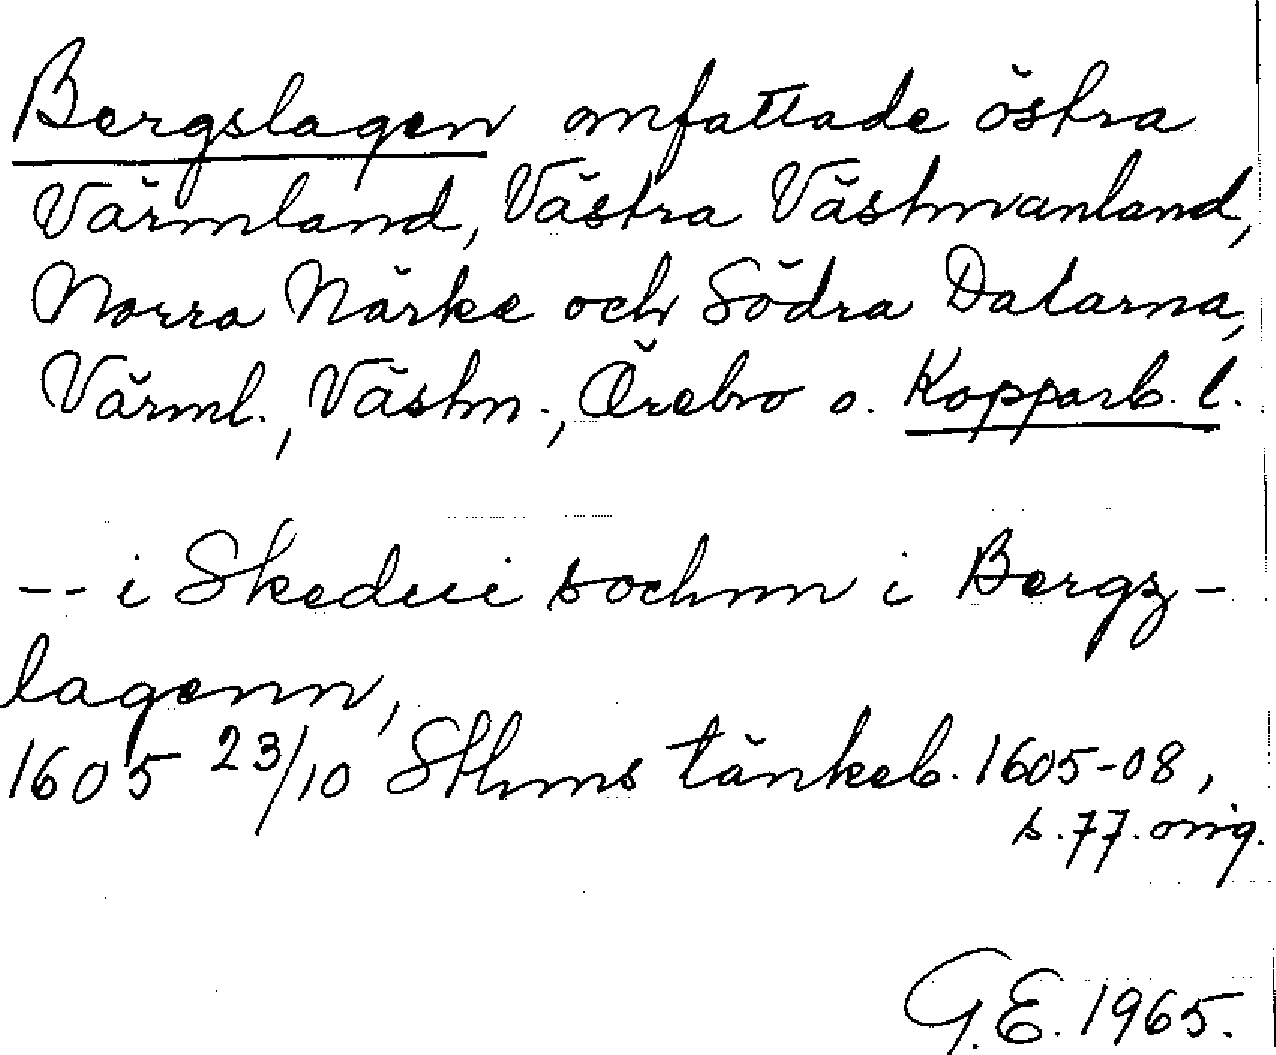 Bergslagen omfattade östra
Värmland, Västra Västmanland,
Norra Närke och Södra Dalarna,
Värml., Västm., Örebro o. Kopparb. l.
-- i Skedwi sochnn i Bergz-
lagenn,
1605 23/10 Sthms tänkeb. 1605-08,
s. 77. orig.
G.E. 1965.